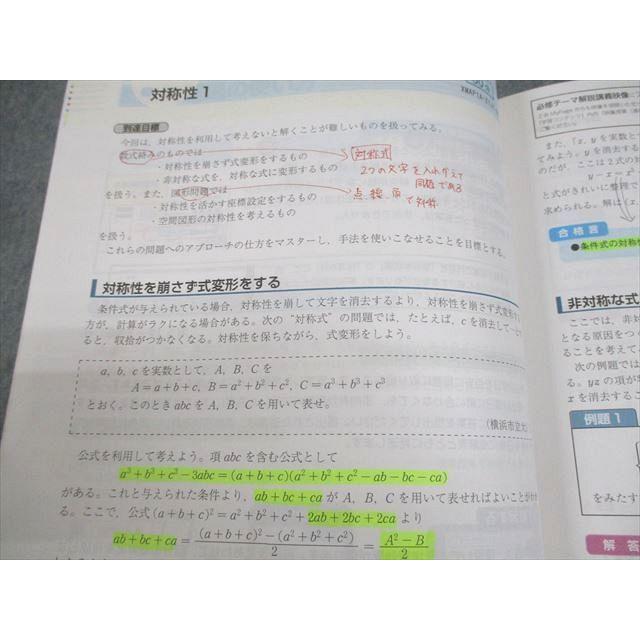 対称性1
到達目標
今回は，対称性を利用して考えないと解くことが難しいものを扱ってみる。
数式絡みのものでは
・対称性を崩さず式変形をするもの
・非対称な式を，対称な式に変形するもの
を扱う。また，図形問題では
・対称性を活かす座標設定をするもの
・空間図形の対称性を考えるもの
を扱う。
これらの問題へのアプローチの仕方をマスターし，手法を使いこなせることを目標とする。
対称式
2つの文字を入れかえて
同値である
点 線 面 で対称
対称性を崩さず式変形をする
条件式が与えられている場合，対称性を崩して文字を消去するより，対称性を崩さず式変形す
方が，計算がラクになる場合がある。次の“対称式”の問題では，たとえば，cを消去して
ると，収拾がつかなくなる。対称性を保ちながら，式変形をしよう。
a, b, cを実数として，A, B, Cを
A＝a＋b＋c, B＝a²＋b²＋c², C＝a³＋b³＋c³
とおく。このときabcをA, B, Cを用いて表せ。
（横浜市立大
公式を利用して考えよう。項abcを含む公式として
a³＋b³＋c³－3abc＝(a＋b＋c)(a²＋b²＋c²－ab－bc－ca)
がある。これと与えられた条件より，ab＋bc＋caがA, B, Cを用いて表せればよいことが
る。ここで，公式(a＋b＋c)²＝a²＋b²＋c²＋2ab＋2bc＋2caより
ab＋bc＋ca＝{(a＋b＋c)²－(a²＋b²＋c²)}/2＝(A²－B)/2
必修テーマ解説講義映像
また，
てみよう。yを消去する
のだが，ここは2式の
y－x＝
と式がきれいに整理で
求められる。解は(x,
合格言
●条件式の対称
非対称な式
ここでは，非対
となる原因をつ
ることを考えて
次の例題では
る。yzの項が
xを消去するこ
例題1
をみたす
解答